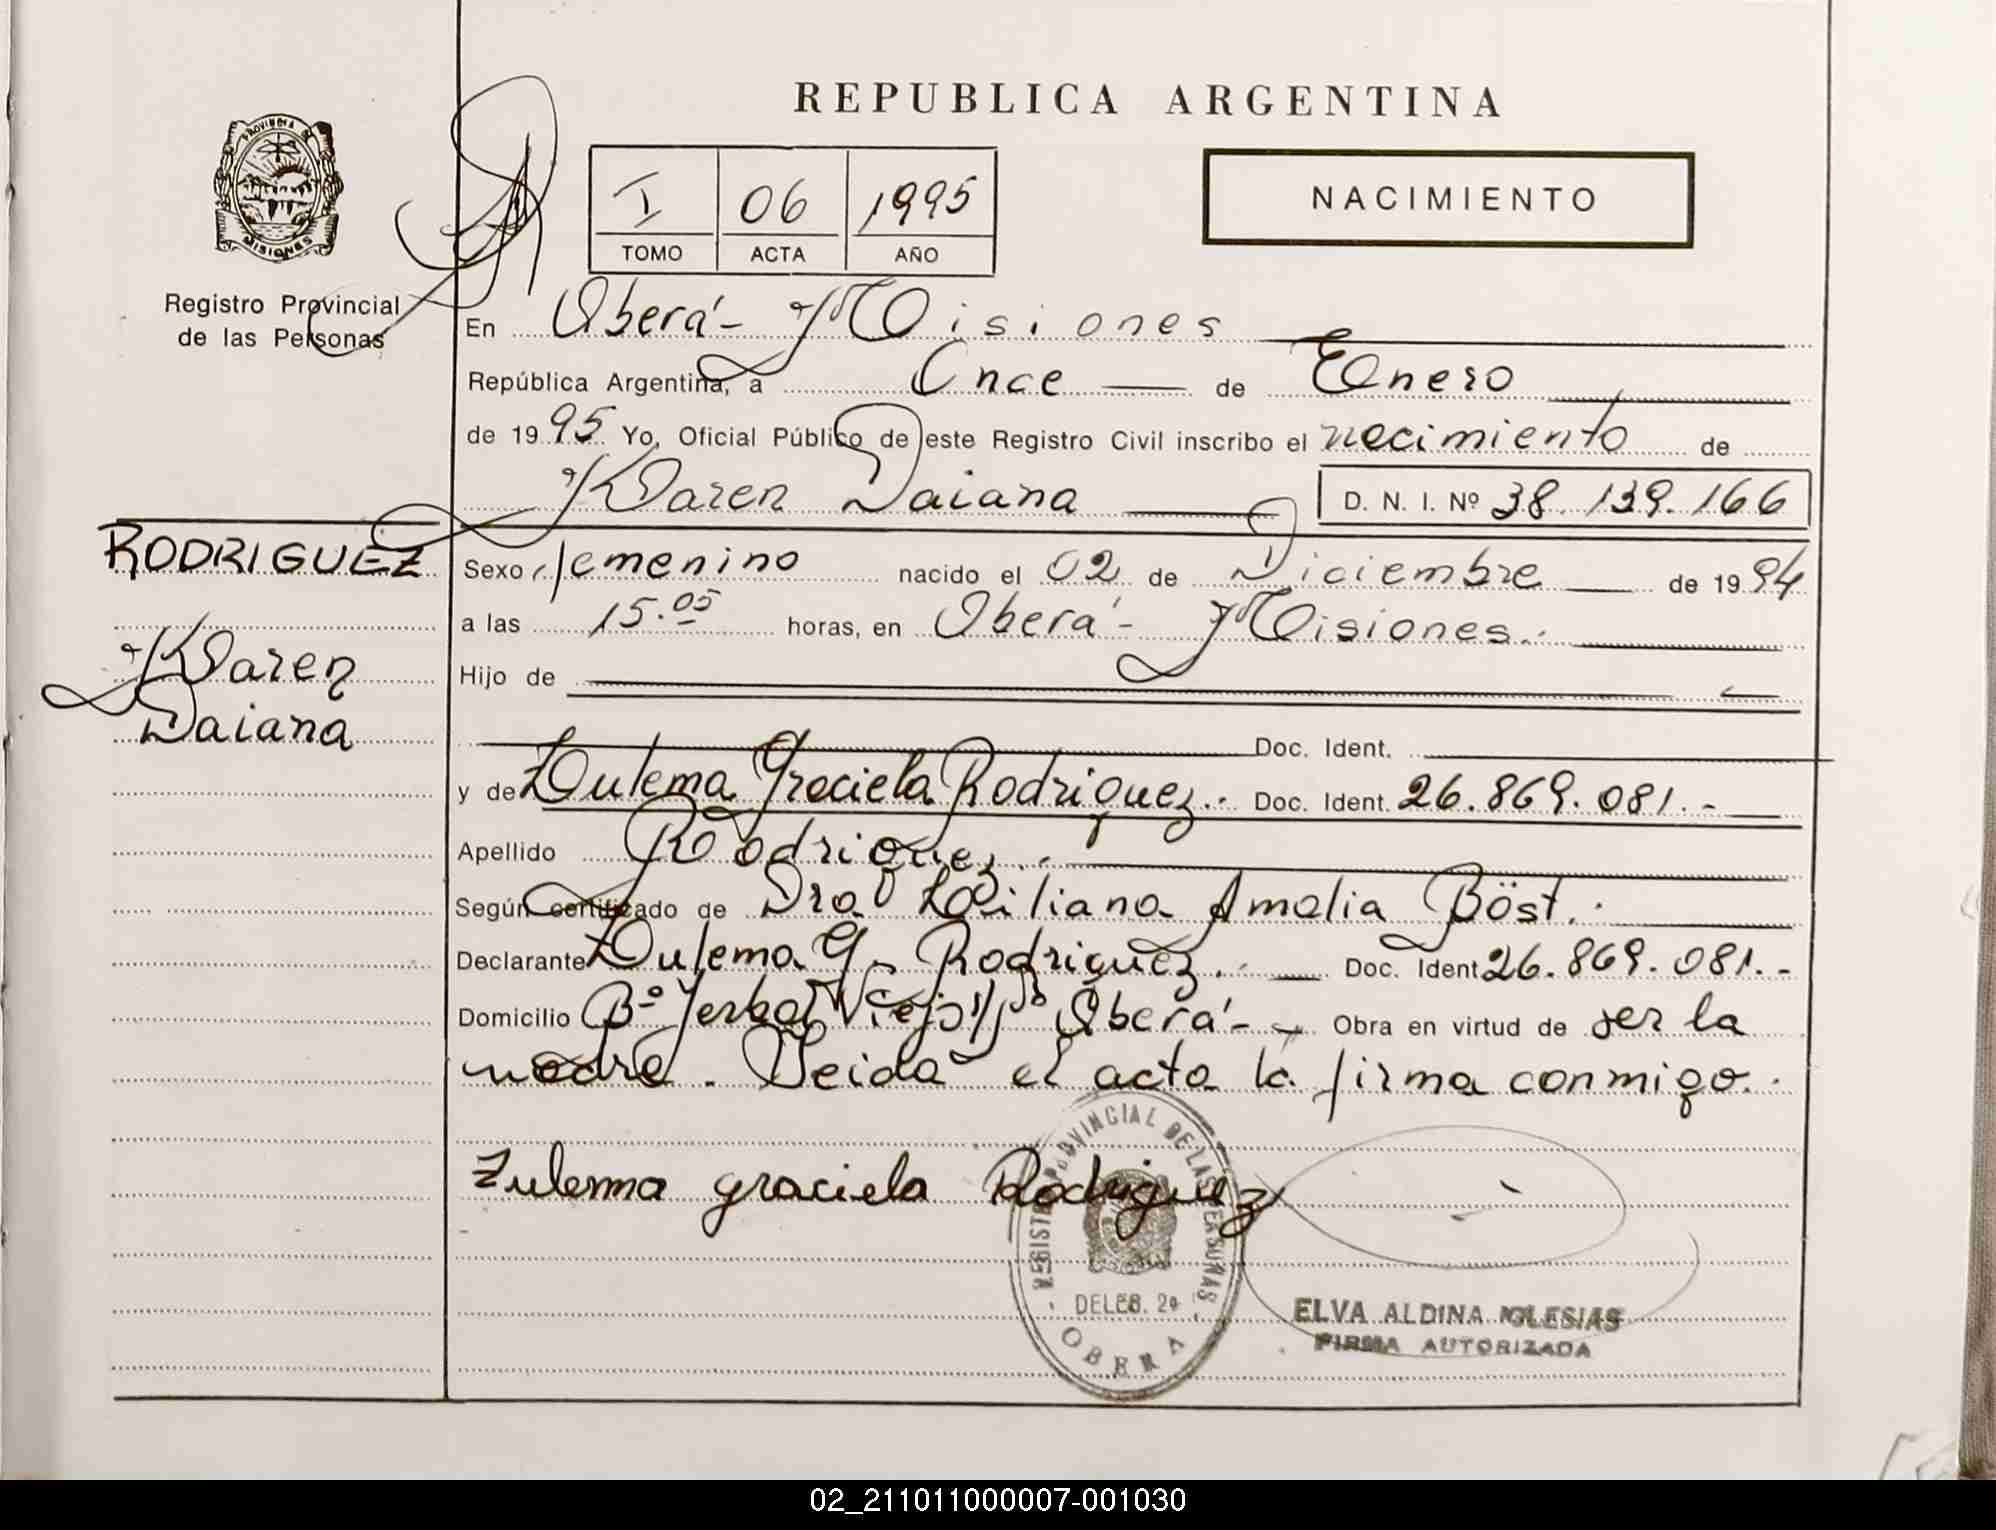 REPUBLICA ARGENTINA
PROVINCIA DE
MISIONES
Registro Provincial
de las Personas
I 06 1995
TOMO ACTA AÑO
NACIMIENTO
En Oberá - Misiones
República Argentina, a Once de Enero
de 1995 Yo, Oficial Público de este Registro Civil inscribo el nacimiento de
Karen Daiana D. N. I. Nº 38.139.166
RODRIGUEZ
Karen
Daiana
Sexo femenino nacido el 02 de Diciembre de 1994
a las 15.05 horas, en Oberá - Misiones.
Hijo de
Doc. Ident.
y de Zulema Graciela Rodriguez. Doc. Ident. 26.869.081.-
Apellido Rodriguez.
Según certificado de Dra Liliana Amalia Böst.
Declarante Zulema G. Rodriguez. Doc. Ident 26.869.081.-
Domicilio Bº Yerbal Viejo Oberá - Obra en virtud de ser la
madre. Leida el acta la firma conmigo.
Zulema graciela Rodriguez
REGISTRO PROVINCIAL DE LAS PERSONAS
DELEG. 2
OBERA
ELVA ALDINA IGLESIAS
FIRMA AUTORIZADA
02_211011000007-001030